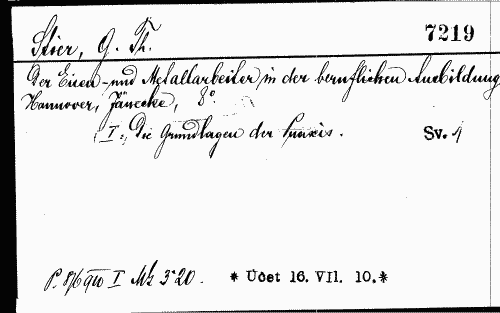 Stier, G. Th. 7219
Der Eisen- und Metallarbeiter in der beruflichen Ausbildung
Hannover, Jänecke, 8°.
(I.: Die Grundlagen der Praxis. Sv. 1
P. 8/6 910 I Mk 3·20. * Účet 16. VII. 10. *